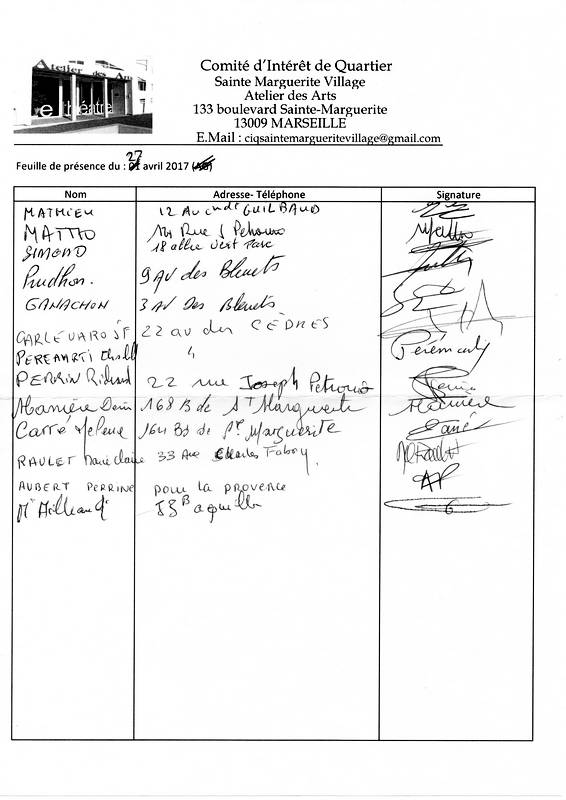 Atelier des Arts
e théâtre
Comité d'Intérêt de Quartier
Sainte Marguerite Village
Atelier des Arts
133 boulevard Sainte-Marguerite
13009 MARSEILLE
E.Mail : ciqsaintemargueritevillage@gmail.com
Feuille de présence du : 27 avril 2017
Nom Adresse- Téléphone Signature
MATHIEU 12 Av GUILBAUD
MATTIO Rue J Mattio
SIMOND 18 allée Vert Parc
Prudhon. 9 AV des Bleuets
GANACHON 3 AV Des Bleuets
CARLEVARO JF 22 av des CÈDRES
"
PERRIN Richard 22 rue Joseph
Manière Denis 168 B de St Marguerite Manière
Carré Helene 164 Bd de Ste Marguerite Carré
RAULET Marie Claire 33 Ave Charles Fabry,
AUBERT PERRINE POUR LA PROVENCE AP